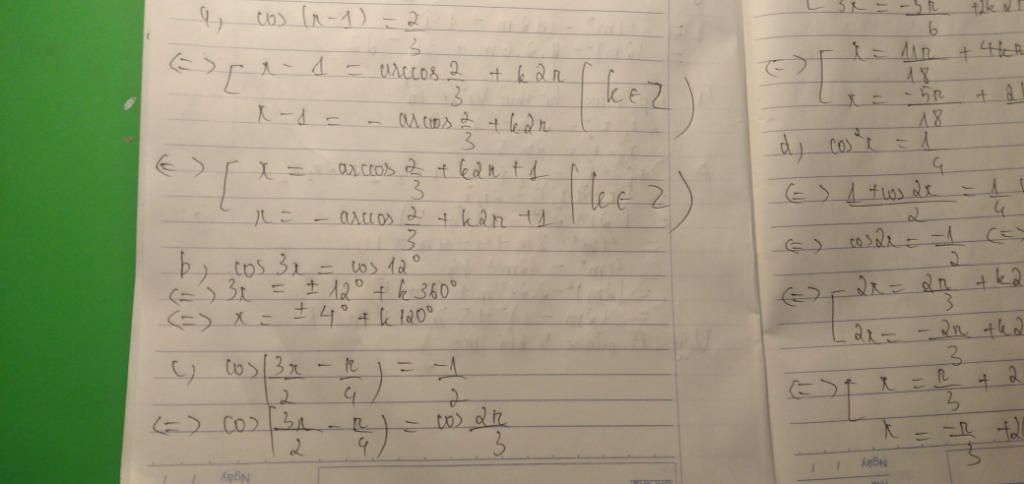 a, cos (x-1) = 2/3
<=> [ x - 1 = arccos 2/3 + k2π
x - 1 = - arccos 2/3 + k2π (k ∈ Z)
<=> [ x = arccos 2/3 + k2π + 1
x = - arccos 2/3 + k2π + 1 (k ∈ Z)
b, cos 3x = cos 12°
<=> 3x = ± 12° + k 360°
<=> x = ± 4° + k 120°
c, cos (3x/2 - π/4) = -1/2
<=> cos (3x/2 - π/4) = cos 2π/3
Ngày
3x = -5π/6 + k2π
<=> [ x = 11π/18 + 4kπ
x = -5π/18 +
d, cos²x = 1/4
<=> 1 + cos 2x / 2 = 1/4
<=> cos 2x = -1/2 <=>
<=> [ 2x = 2π/3 + k2
2x = - 2π/3 + k2
<=> [ x = π/3 + 2
x = -π/3 + 2
Ngày